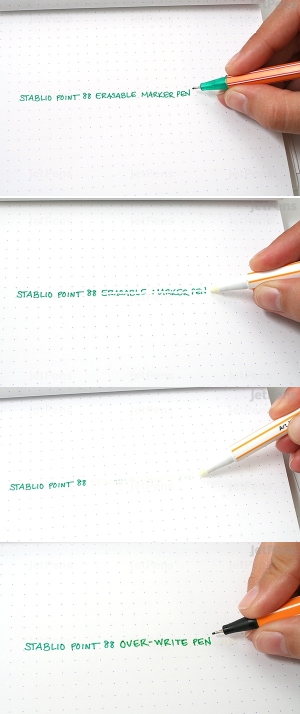 STABLIO POINT 88 ERASABLE MARKER PEN
STABLIO POINT 88 ERASABLE MARKER PEN
STABLIO POINT 88
STABLIO POINT 88 OVER-WRITE PEN